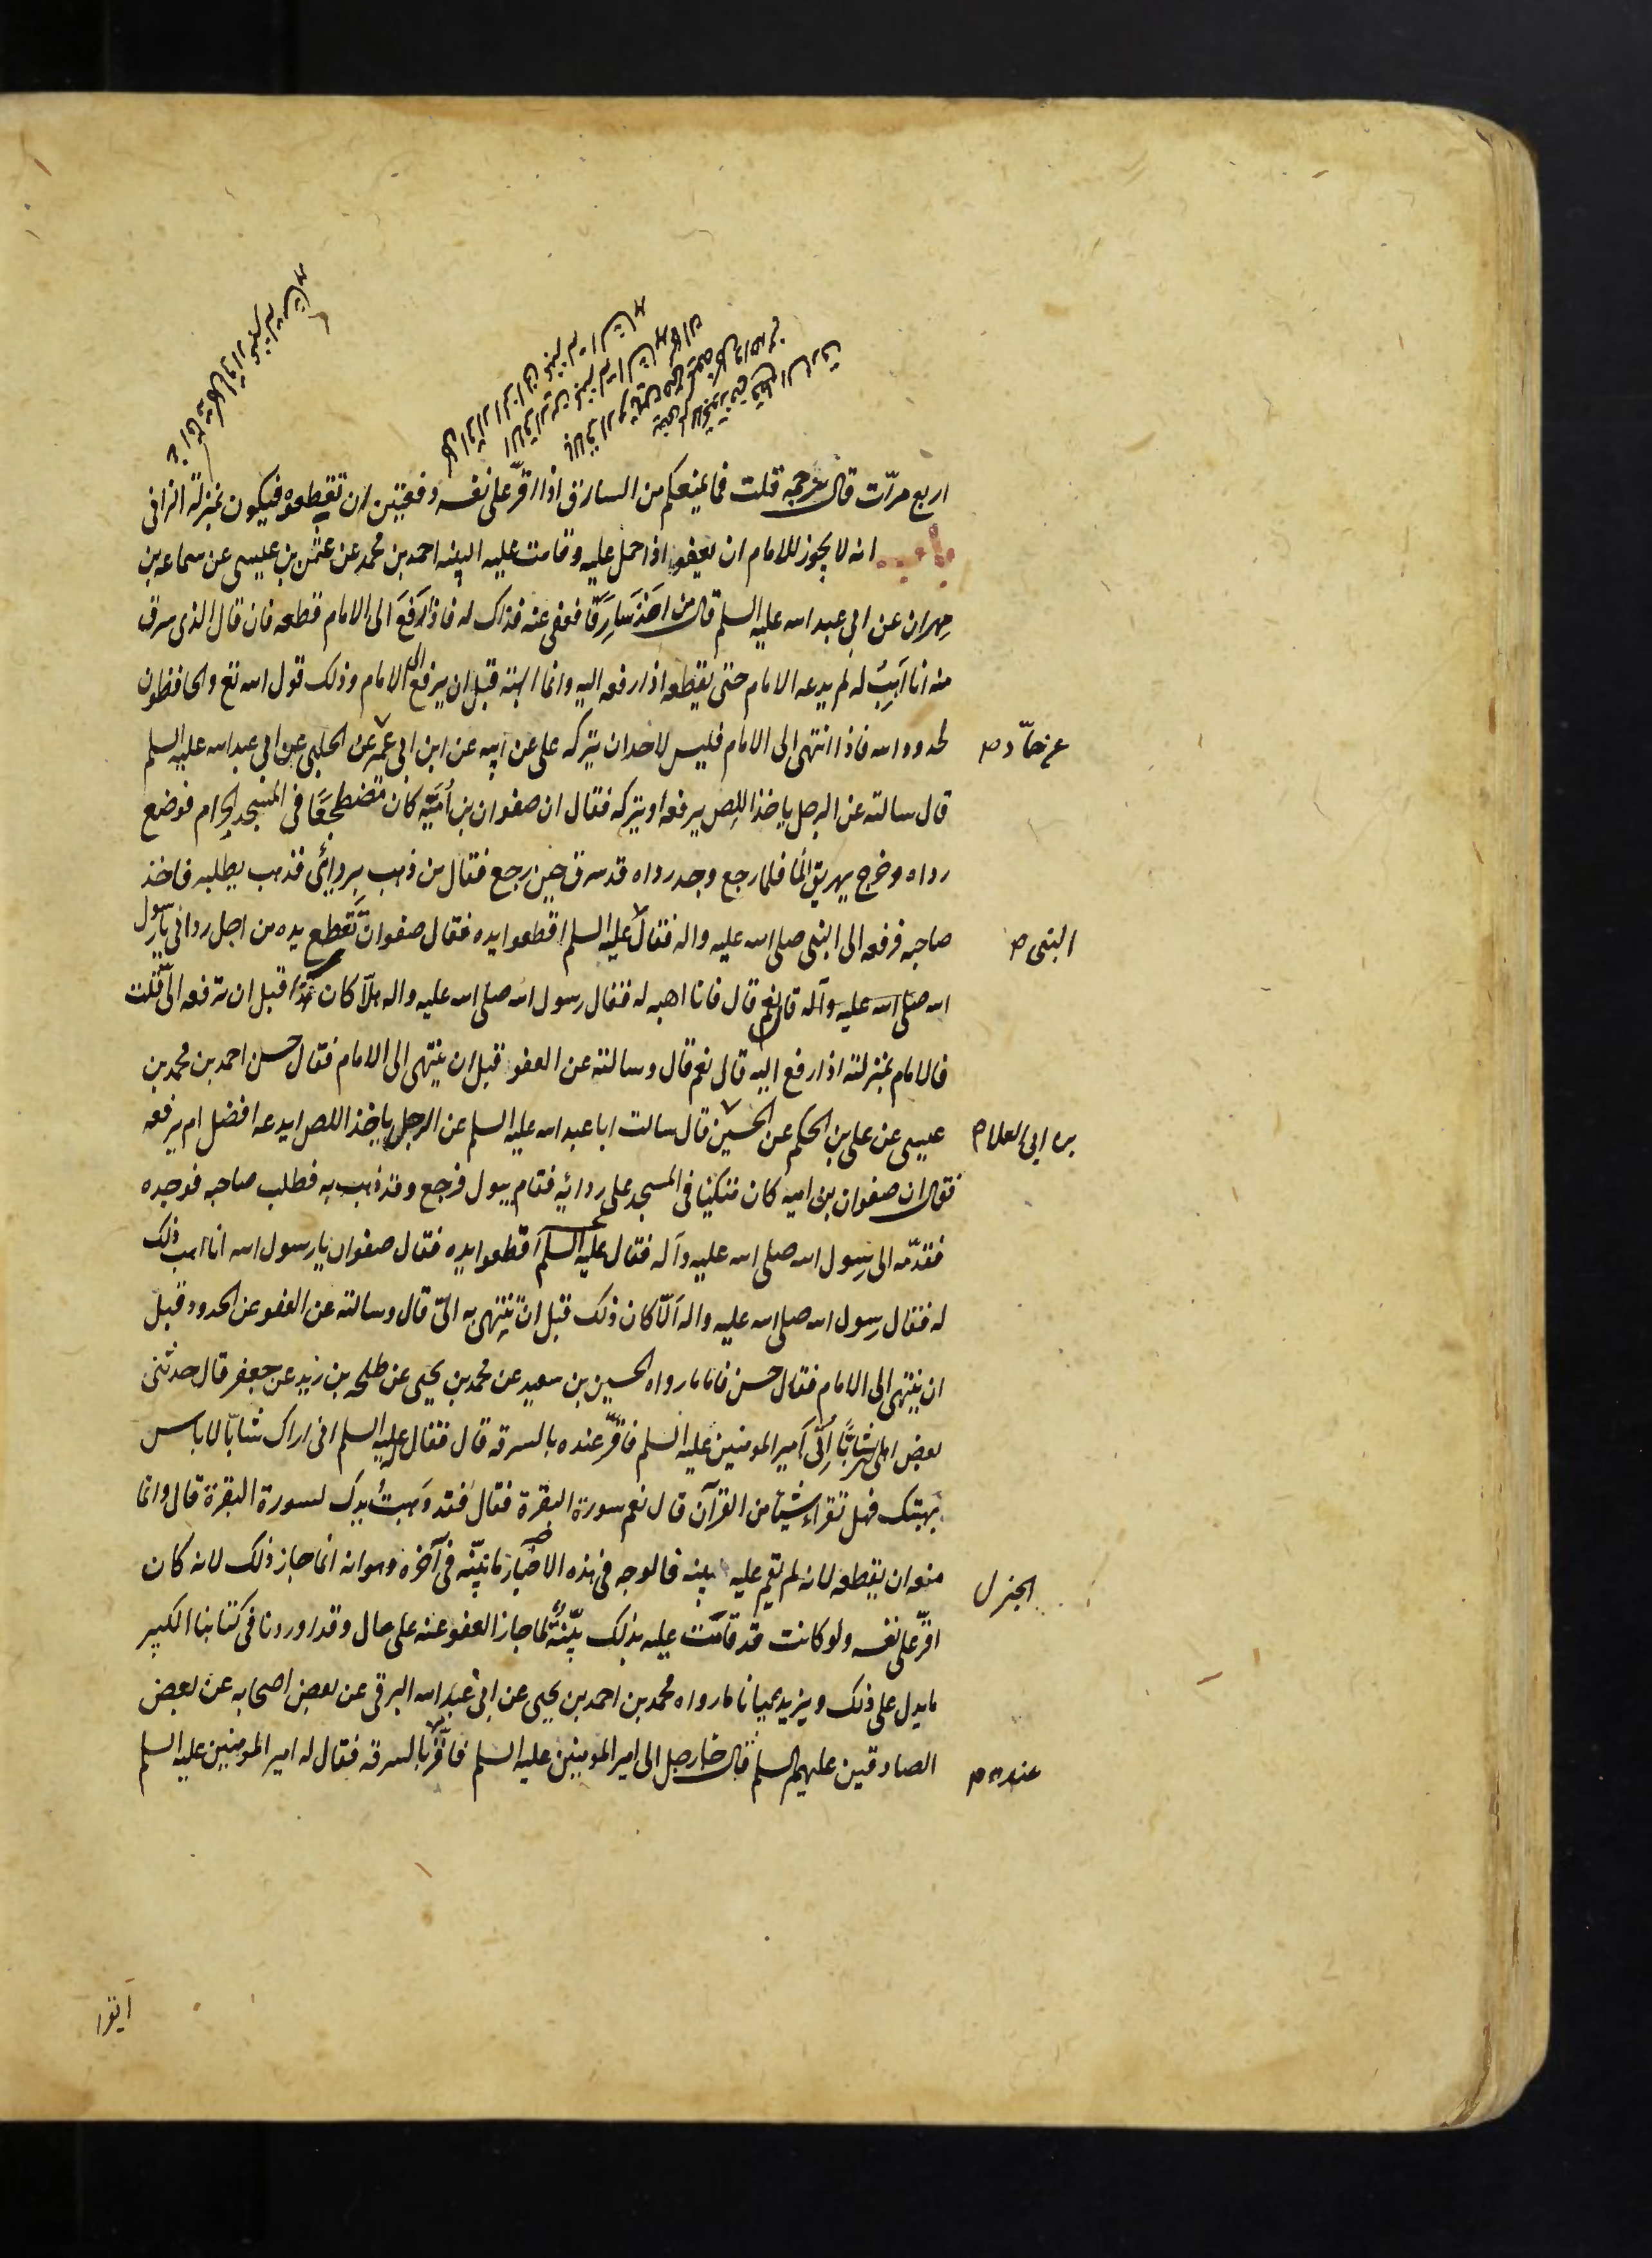 اربع مرّات قال نرجمه قلت فما يمنعكم من السارق اذا اقرّ على نفسه دفعتين ان تقطعوه فيكون بمنزلة الزانى
باب انه لا يجوز للامام ان يعفو اذا حمل عليه وقامت عليه البينه احمد بن محمد عن عثمن بن عيسى عن سماعه بن
مهران عن ابى عبد الله عليه السلم قال من اخذ سارقا فعفى عنه فذاك له فاذا رفع الى الامام قطعه فان قال الذى سرق
منه انا اهب له لم يدعه الامام حتى يقطعه اذا رفعه اليه وانما الهبة قبل ان يرفع الى الامام وذلك قول الله تع والحافظون
لحدود الله فاذا انتهى الى الامام فليس لاحد ان يتركه على عن ابيه عن ابن ابى عمير عن الحلبى عن ابى عبد الله عليه السلم
عن حمّاد ص
قال سالته عن الرجل ياخذ اللص يرفعه او يتركه فقال ان صفوان بن اُميّه كان مضطجعًا فى المسجد الحرام فوضع
رداه وخرج يهريق الما فلما رجع وجد رداه قد سرق حين رجع فقال من ذهب بردائى فذهب يطلبه فاخذ
صاحبه فرفعه الى النبى صلى الله عليه واله فقال عليه السلم اقطعوا يده فقال صفوان تقطع يده من اجل ردائى يا رسول
النبى ص
الله صلى الله عليه وآله قال نعم قال فانا اهبه له فقال رسول الله صلى الله عليه واله هلّا كان هذا قبل ان ترفعه الىّ قلت
فالامام بمنزلته اذا رفع اليه قال نعم قال وسالته عن العفو قبل ان ينتهى الى الامام فقال حسن احمد بن محمد بن
عيسى عن على بن الحكم عن الحسين قال سالت ابا عبد الله عليه السلم عن الرجل ياخذ اللص ايدعه افضل ام يرفعه
بن ابى العلا ص
فقال ان صفوان بن اميه كان متكئا فى المسجد على ردائه فقام يبول فرجع وقد ذهب به فطلب صاحبه فوجده
فقدّمه الى رسول الله صلى الله عليه وآله فقال عليه السلم اقطعوا يده فقال صفوان يا رسول الله انا اهب ذلك
له فقال رسول الله صلى الله عليه واله اَلّا كان ذلك قبل ان ينتهى به الىّ قال وسالته عن العفو عن الحدود قبل
ان ينتهى الى الامام فقال حسن فاما ما رواه الحسين بن سعيد عن محمد بن يحيى عن طلحه بن زيد عن جعفر قال حدثنى
بعض اهلى ان شابًّا اتى امير المومنين عليه السلم فاقرّ عنده بالسرقه قال فقال عليه السلم انى اراك شابّا لا باس
بهبتك فهل تقراء شيئا من القرآن قال نعم سورة البقرة فقال فقد وَهبتُ يدك لسورة البقرة قال وانما
منعه ان يقطعه لانه لم تقم عليه بينه فالوجه فى هذه الاخبار ما بيّنه فى آخره وهو انه انما جاز ذلك لانه كان
الخبر ل
اقرّ على نفسه ولو كانت قد قامت عليه بذلك بيّنةٌ لما جاز العفو عنه على حال وقد اوردنا فى كتابنا الكبير
ما يدل على ذلك ويزيده بيانا ما رواه محمد بن احمد بن يحيى عن ابى عبد الله البرقى عن بعض اصحابه عن بعض
الصادقين عليهم السلم قال جاء رجل الى امير المومنين عليه السلم فاقرّ بالسرقه فقال له امير المومنين عليه السلم
عنده ص
اتقرا